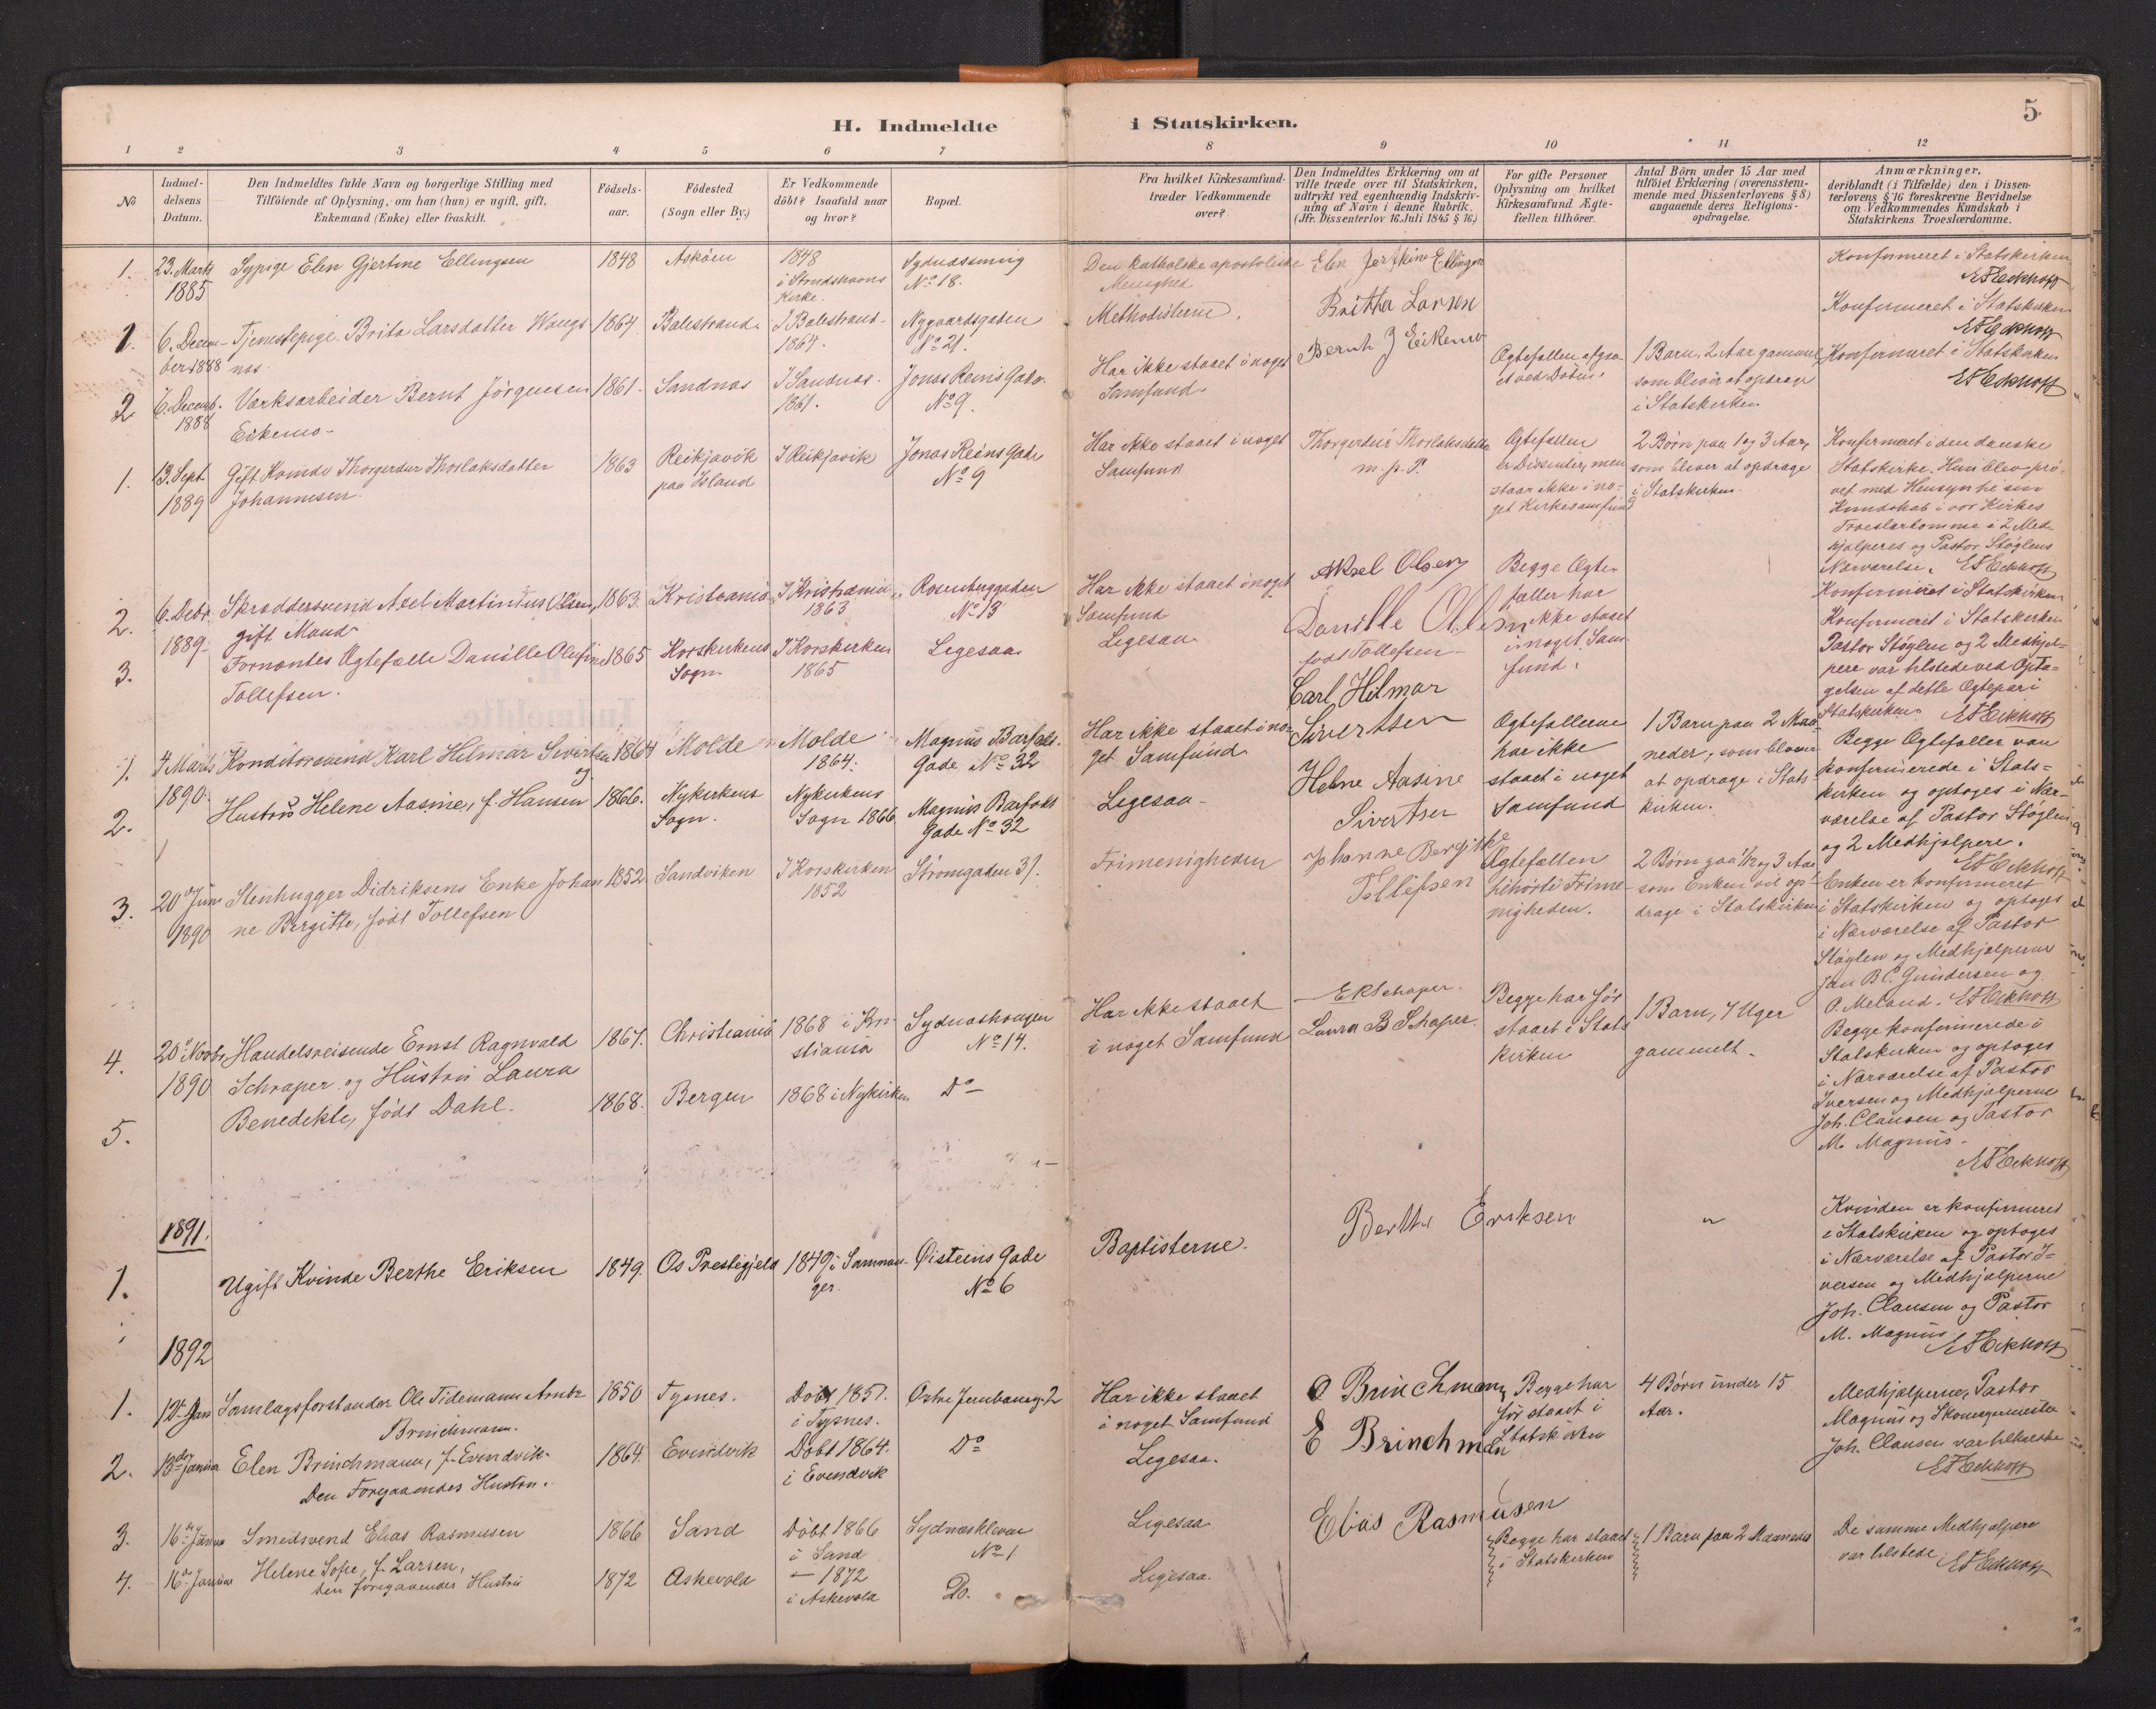 H. Indmeldte i Statskirken.
5
1 2 3 4 5 6 7 8 9 10 11 12
№
Indmel-
delsens
Datum.
Den Indmeldtes fulde Navn og borgerlige Stilling med
Tilföiende af Oplysning, om han (hun) er ugift, gift,
Enkemand (Enke) eller fraskilt.
Födsels-
aar.
Födested
(Sogn eller By.)
Er Vedkommende
döbt? Isaafald naar
og hvor?
Bopæl.
Fra hvilket Kirkesamfund
træder Vedkommende
over?
Den Indmeldtes Erklæring om at
ville træde over til Statskirken,
udtrykt ved egenhændig Indskriv-
ning af Navn i denne Rubrik.
(Jfr. Dissenterlov 16. Juli 1845 § 16.)
For gifte Personer
Oplysning om hvilket
Kirkesamfund Ægte-
fællen tilhörer.
Antal Börn under 15 Aar med
tilföiet Erklæring (overensstem-
mende med Dissenterlovens § 8)
angaaende deres Religions-
opdragelse.
Anmærkninger,
deriblandt (i Tilfælde) den i Dissen-
terlovens § 16 foreskrevne Bevidnelse
om Vedkommendes Kundskab i
Statskirkens Troeslærdomme.
1.
23. Marts
1885
Sypige Elen Gjertine Ellingsen
1848
Askøen
1848
i Strudshavns
Kirke.
Sydnæssmug
No 18.
Den katholske apostoliske
Menighed
Konfirmeret i Statskirken
E F Eckhoff
1.
6. Decem-
ber 1888
Tjenestepige Brita Larsdatter Wangs-
nes
1864
Balestrand
I Balestrand
1864.
Nygaardsgaden
No 21.
Methodisterne.
Britha Larsen
Konfirmeret i Statskirken
E F Eckhoff
2
6. Decemb.
1888
Værksarbeider Bernt Jörgensen
Eikemo-
1861.
Sandnæs
I Sandnæs.
1861.
Jonas Reins Gade
No 9.
Har ikke staaet i noget
Samfund
Bernt J Eikemo
Ægtefællen afgaa-
et ved Döden.
1 Barn, 2 Aar gammel,
som bliver at opdrage
i Statskirken
Konfirmeret i Statskirken
E F Eckhoff
1.
13. Sept
1889
Gift Kvinde Thorgerdur Thorlaksdatter
Johannesen.
1863
Reikjavik
paa Island
I Reikjavik
Jonas Reins Gade
No 9
Har ikke staaet i noget
Samfund
Thorgerdur Thorlaksdatter
m. p. P.
Ægtefællen
er Dissenter, men
staar ikke i no-
get Kirkesamfund
2 Børn paa 1 og 3 Aar,
som bliver at opdrage
i Statskirken.
Konfirmeret i den danske
Statskirke. Hun blev prø-
vet med Hensyn til sin
Kundskab i vor Kirkes
Troeslærdomme i 2 Med-
hjælperes og Pastor Støylens
Nærværelse. E F Eckhoff
2.
6. Debr
1889-
Skræddersvend Axel Martinius Olsen,
gift Mand
1863.
Kristiania
I Kristiania
1863
Rosenberggaden
No 13
Har ikke staaet i noget
Samfund
Aksel Olsen
Begge Ægte-
fæller har
ikke staaet
i noget Sam-
fund.
Konfirmeret i Statskirken
3.
Fornævntes Ægtefælle Danille Olufine
Tollefsen.
1865
Korskirkens
Sogn
I Korskirken
1865
Ligesaa
Ligesaa
Danille Ollsen
født Tollefsen-
Konfirmeret i Statskirken
Pastor Støylen og 2 Medhjæl-
pere var tilstede ved Opta-
gelsen af dette Ægtepar i
Statskirken. E F Eckhoff
1.
4 Marts
1890.
Konditorsvend Karl Hilmar Sivertsen
og
1864
Molde
Molde
1864.
Magnus Barfods
Gade No 32
Har ikke staaet i no-
get Samfund
Carl Hilmar
Sivertsen
Ægtefællerne
har ikke
staaet i noget
Samfund
1 Barn paa 2 Maa-
neder, som bliver
at opdrage i Stats
kirken.
Begge Ægtefæller var
konfirmerede i Stats-
kirken og optoges i Nær-
værelse af Pastor Støylen
og 2 Medhjælpere.
E F Eckhoff
2.
Hustru Helene Aasine, f. Hansen
1866.
Nykirkens
Sogn.
Nykirkens
Sogn 1866
Magnus Barfods
Gade No 32
Ligesaa-
Helene Aasine
Sivertsen
3.
20de Juni
1890
Stenhugger Didriksens Enke Johan
ne Bergitte, født Tollefsen
1852
Sandviken
I Korskirken
1852
Strømgaden 31.
Frimenigheden
Johanne Bergithe
Tollefsen
Ægtefællen
tilhørte Frime-
nigheden.
2 Børn paa 1/2 og 3 Aar
som Enken vil op-
drage i Statskirken
Enken er konfirmeret
i Statskirken og optoges
i Nærværelse af Pastor
Støylen og Medhjælperne
Jan B. C. Gundersen og
O. Meland. E F Eckhoff
4.
20de Novbr
1890
Handelsreisende Ernst Ragnvald
Schraper og Hustru Laura
Benedikte, født Dahl.
1867.
Christiania
1868 i Kri-
stiania
Sydneshaugen
No 14.
Har ikke staaet
i noget Samfund
Laura B Schaper.
Begge har før
staaet i Stats
kirken
1 Barn, 7 Uger
gammelt.
Begge konfirmerede i
Statskirken og optoges
i Nærværelse af Pastor
Iversen og Medhjælperne
Joh. Clausen og Pastor
M. Magnus-
E F Eckhoff
5.
1868.
Bergen
1868 i Nykirken
Do
1891.
1.
Ugift Kvinde Berthe Eriksen
1849.
Os Prestegjeld
1849 i Samnan-
ger.
Øisteins Gade
No 6
Baptisterne.
Berthe Eriksen
"
Kvinden er konfirmeret
i Statskirken og optoges
i Nærværelse af Pastor I-
versen og Medhjælperne
Joh. Clausen og Pastor
M. Magnus E F Eckhoff
1892
1.
12te Jan
Samlagsforstander Ole Tidemann Arntz
Brinchmann.
1850
Tysnes.
Døbt 1851.
i Tysnes.
Østre Jernbaneg. 2
Har ikke staaet
i noget Samfund
O Brinchmann
Begge har
før staaet i
Statskirken
4 Børn under 15
Aar.
Medhjælperne, Pastor
Magnus og Skomagermester
Joh. Clausen var tilstede
E F Eckhoff
2.
13de Januar
Elen Brinchmann, f. Evindvik-
Den Foregaaendes Hustru.
1864.
Evindvik
Døbt 1864.
i Evindvik
Do
Ligesaa.
E Brinchmann
3.
16de Januar
Smedsvend Elias Rasmusen
1866
Sand
Døbt 1866
i Sand
Sydneskleven
No 1
Ligesaa
Elias Rasmusen
Begge har staaet
i Statskirken
1 Barn paa 2 Maaneder
De samme Medhjælpere
var tilstede. E F Eckhoff
4.
16de Januar
Helene Sofie, f. Larsen,
Den foregaaendes Hustru
1872
Askevold
- 1872
i Askevold
Do.
Ligesaa.